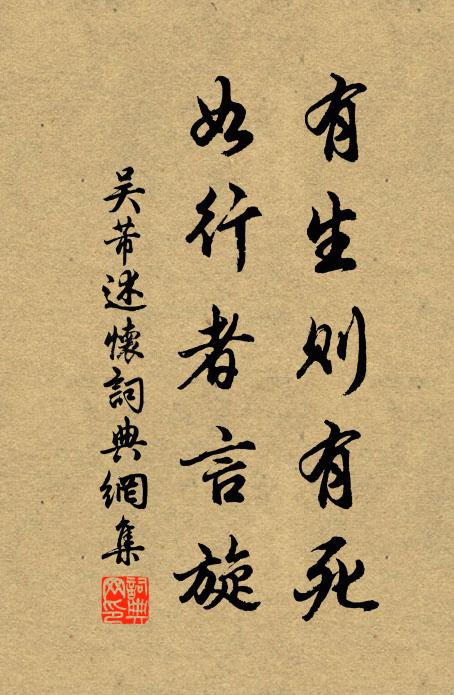 有生則有死
如行者言旋
吴芾述懷詞典網集
詞典網印